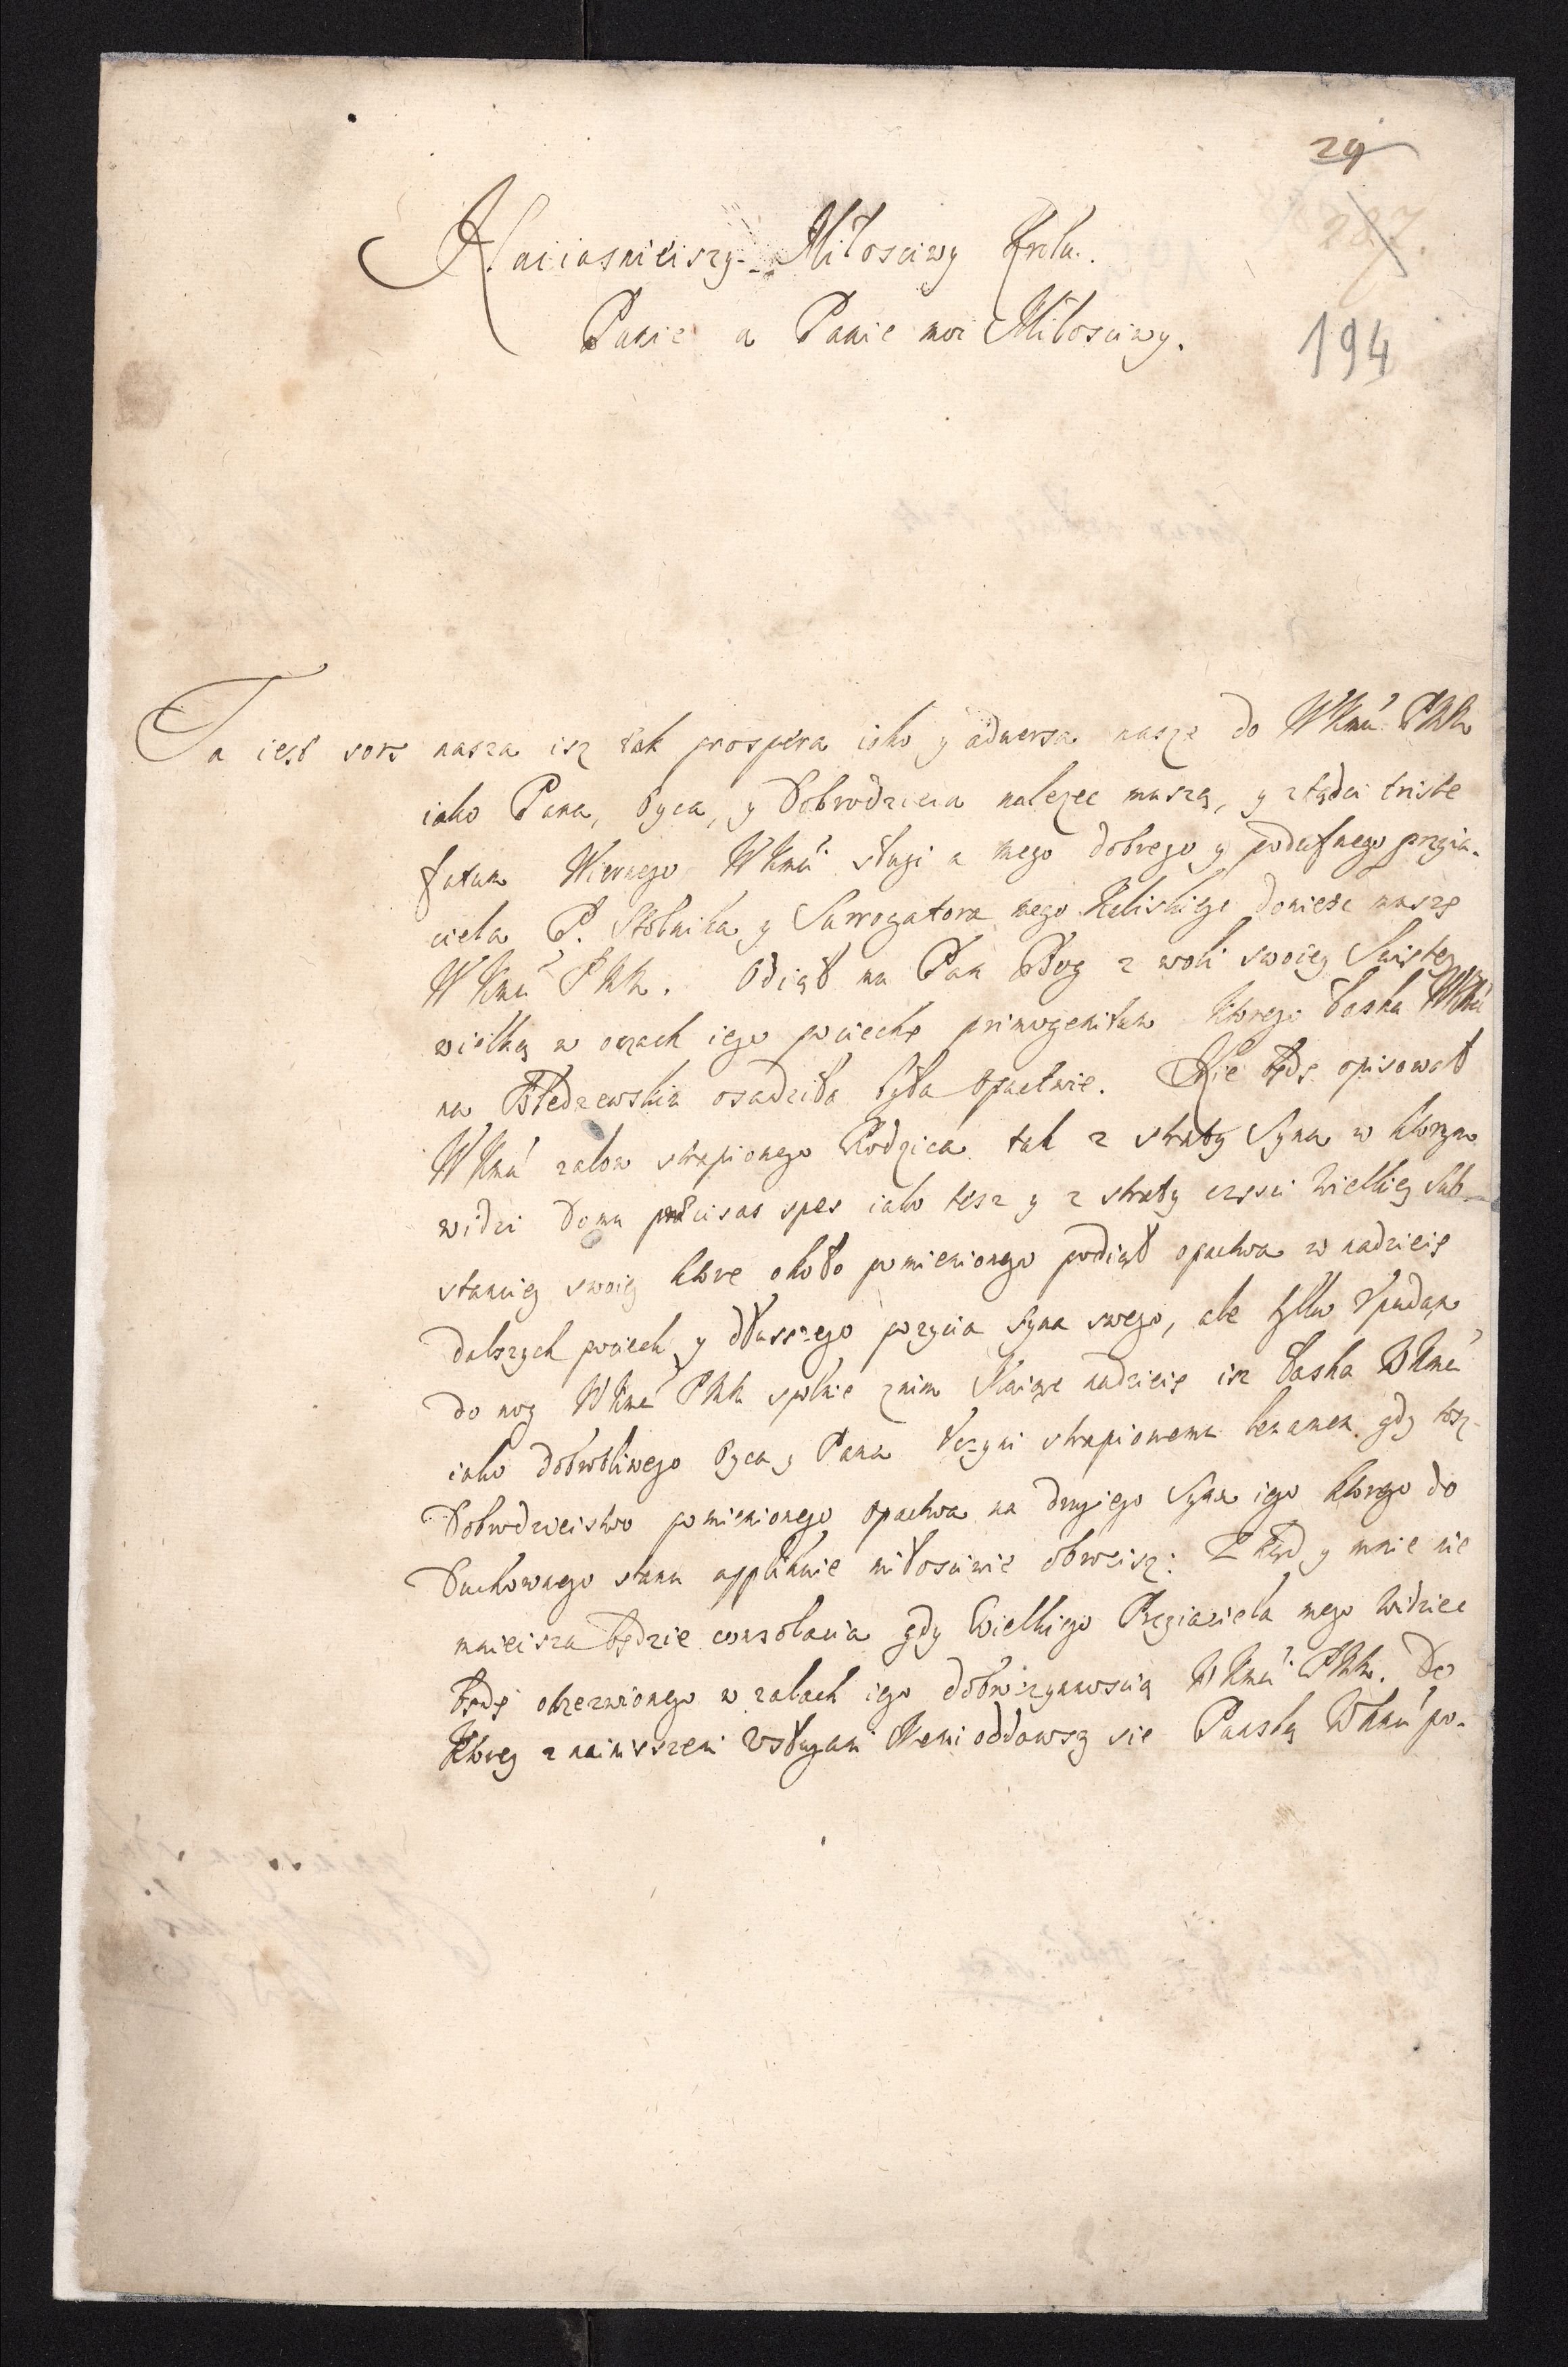 29
287.
194
Naiiasnieiszy Miłosciwy Krolu.
Panie a Panie moi Miłosciwy.
Ta iest sors nasza isz tak prospera iako y adwersa nasze do WKmći PMM
iako Pana, Oyca, y Dobrodzieia nalezec muszą, y ztądci triste
fatum Wiernego WKmći sługi a mego dobrego y poduf​nego przyia-
ciela P. Stolnika y Surrogatora mego Kaliskiego doniesc muszę
WKmći PMM. Odiął mu Pan Bog z woli swoiey Swiętey
wielką w oczach iego pociechę primogenitum ktorego łaska WKmći
na Bledzewskim osadziła była Opactwie. Nie będę opisował
WKmći zalow strapionego Rodzica tak z straty Syna w ktorym
widzi Domu præcisas spes iako tesz y z straty częsci wielkiey Sub-
stanciey swoiey ktore około pomienionego podiął opactwa w nadzieię
dalszych pociech y dłuszszego pozycia Syna swego, ale tylko Upadam
do nog WKmći PMM spolnie z nim maiąc nadzieię isz łaska WKmći
iako dobrotliwego Oyca y Pana Uczyni strapionemu leuamen gdy tosz
Dobrodzieistwo pomienionego Opactwa na drugiego Syna iego ktorego do
Duchownego stanu applikuie miłosciwie obrocisz: Zkąd y mnie nie
mnieisza będzie consolacia gdy Wielkiego Przyiaciela mego widziec
będę otrzezwionego w zalach iego dobroczynnoscią WKmći PMM. Do
ktorey z nainiszszemi Usługami memi oddawszy się Panską WKmći po-